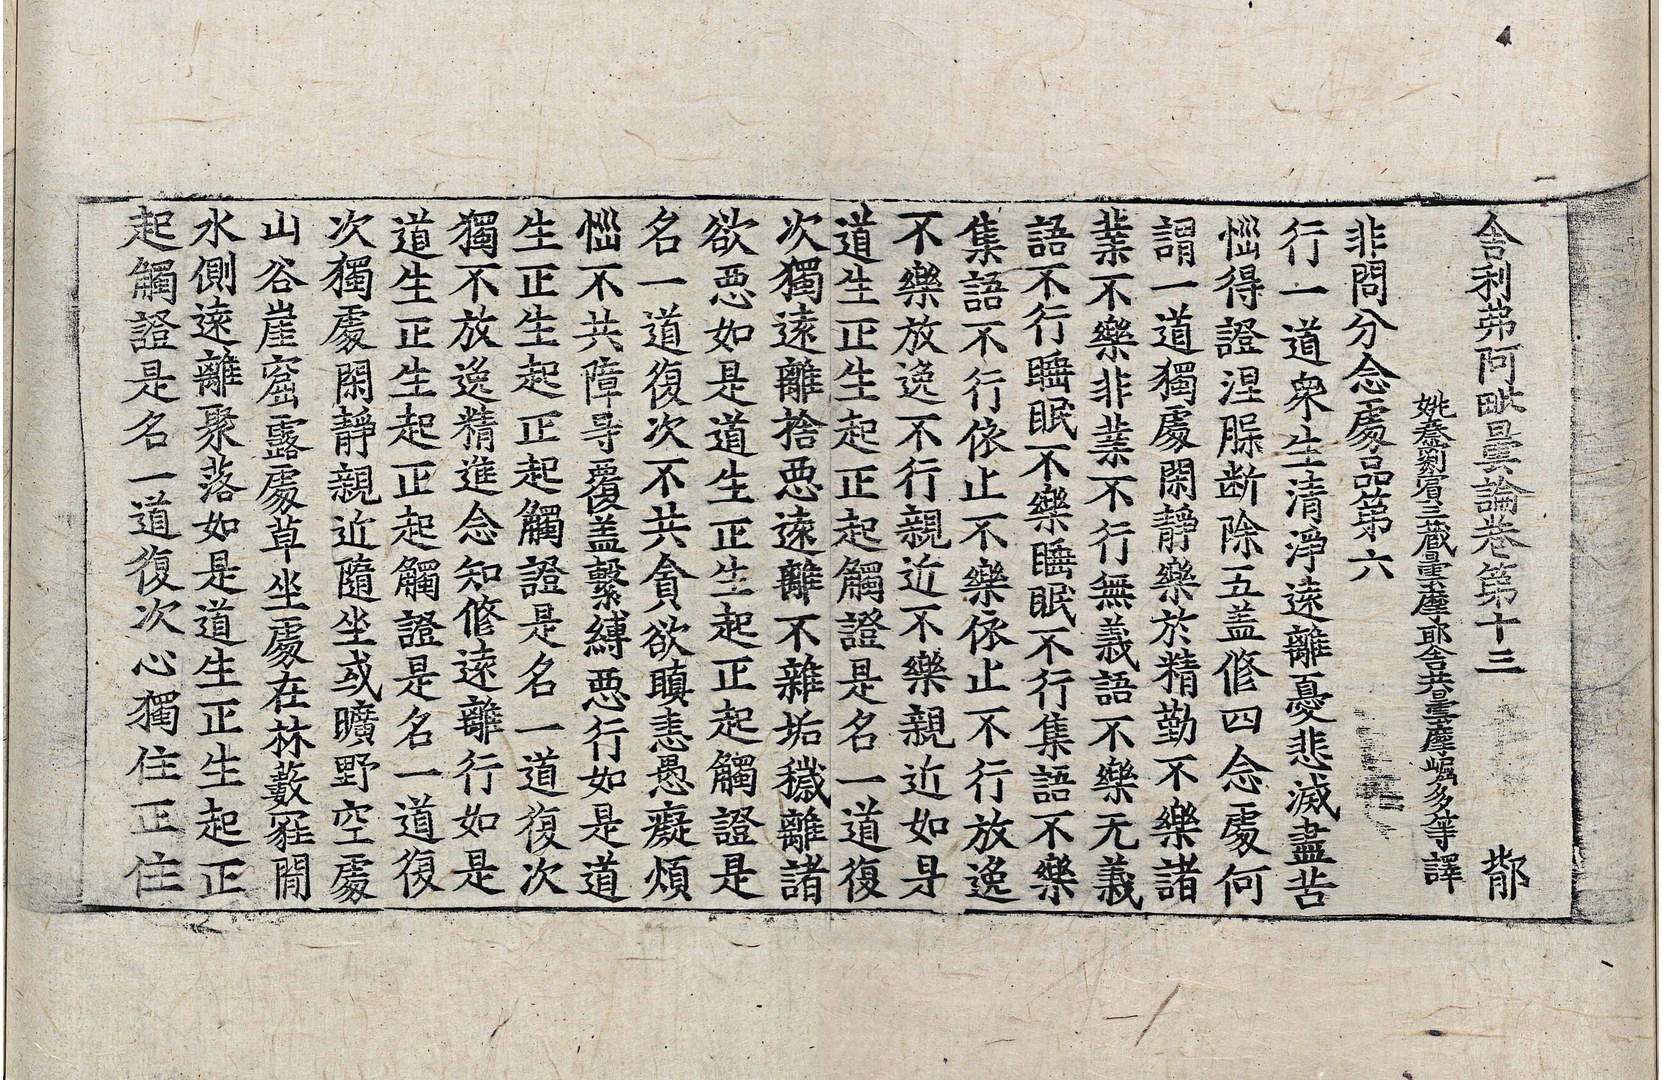 舍利弗阿毗曇論卷第十三 鄁
姚秦罽賓三藏曇摩耶舍共曇摩崛多等譯
非問分念處品第六
行一道衆生清淨遠離憂悲滅盡苦
惱得證涅槃断除五盖修四念處何
謂一道獨處閑靜樂於精勤不樂諸
業不樂非業不行無義語不樂无義
語不行睡眠不樂睡眠不行集語不樂
集語不行依止不樂依止不行放逸
不樂放逸不行親近不樂親近如是
道生正生起正起觸證是名一道復
次獨遠離捨惡遠離不雜垢穢離諸
欲惡如是道生正生起正起觸證是
名一道復次不共貪欲瞋恚愚癡煩
惱不共障㝵覆盖繫縛惡行如是道
生正生起正起觸證是名一道復次
獨不放逸精進念知修遠離行如是
道生正生起正起觸證是名一道復
次獨處閑靜親近隨坐或曠野空處
山谷崖窟露處草坐處在林藪窟間
水側遠離聚落如是道生正生起正
起觸證是名一道復次心獨住正住